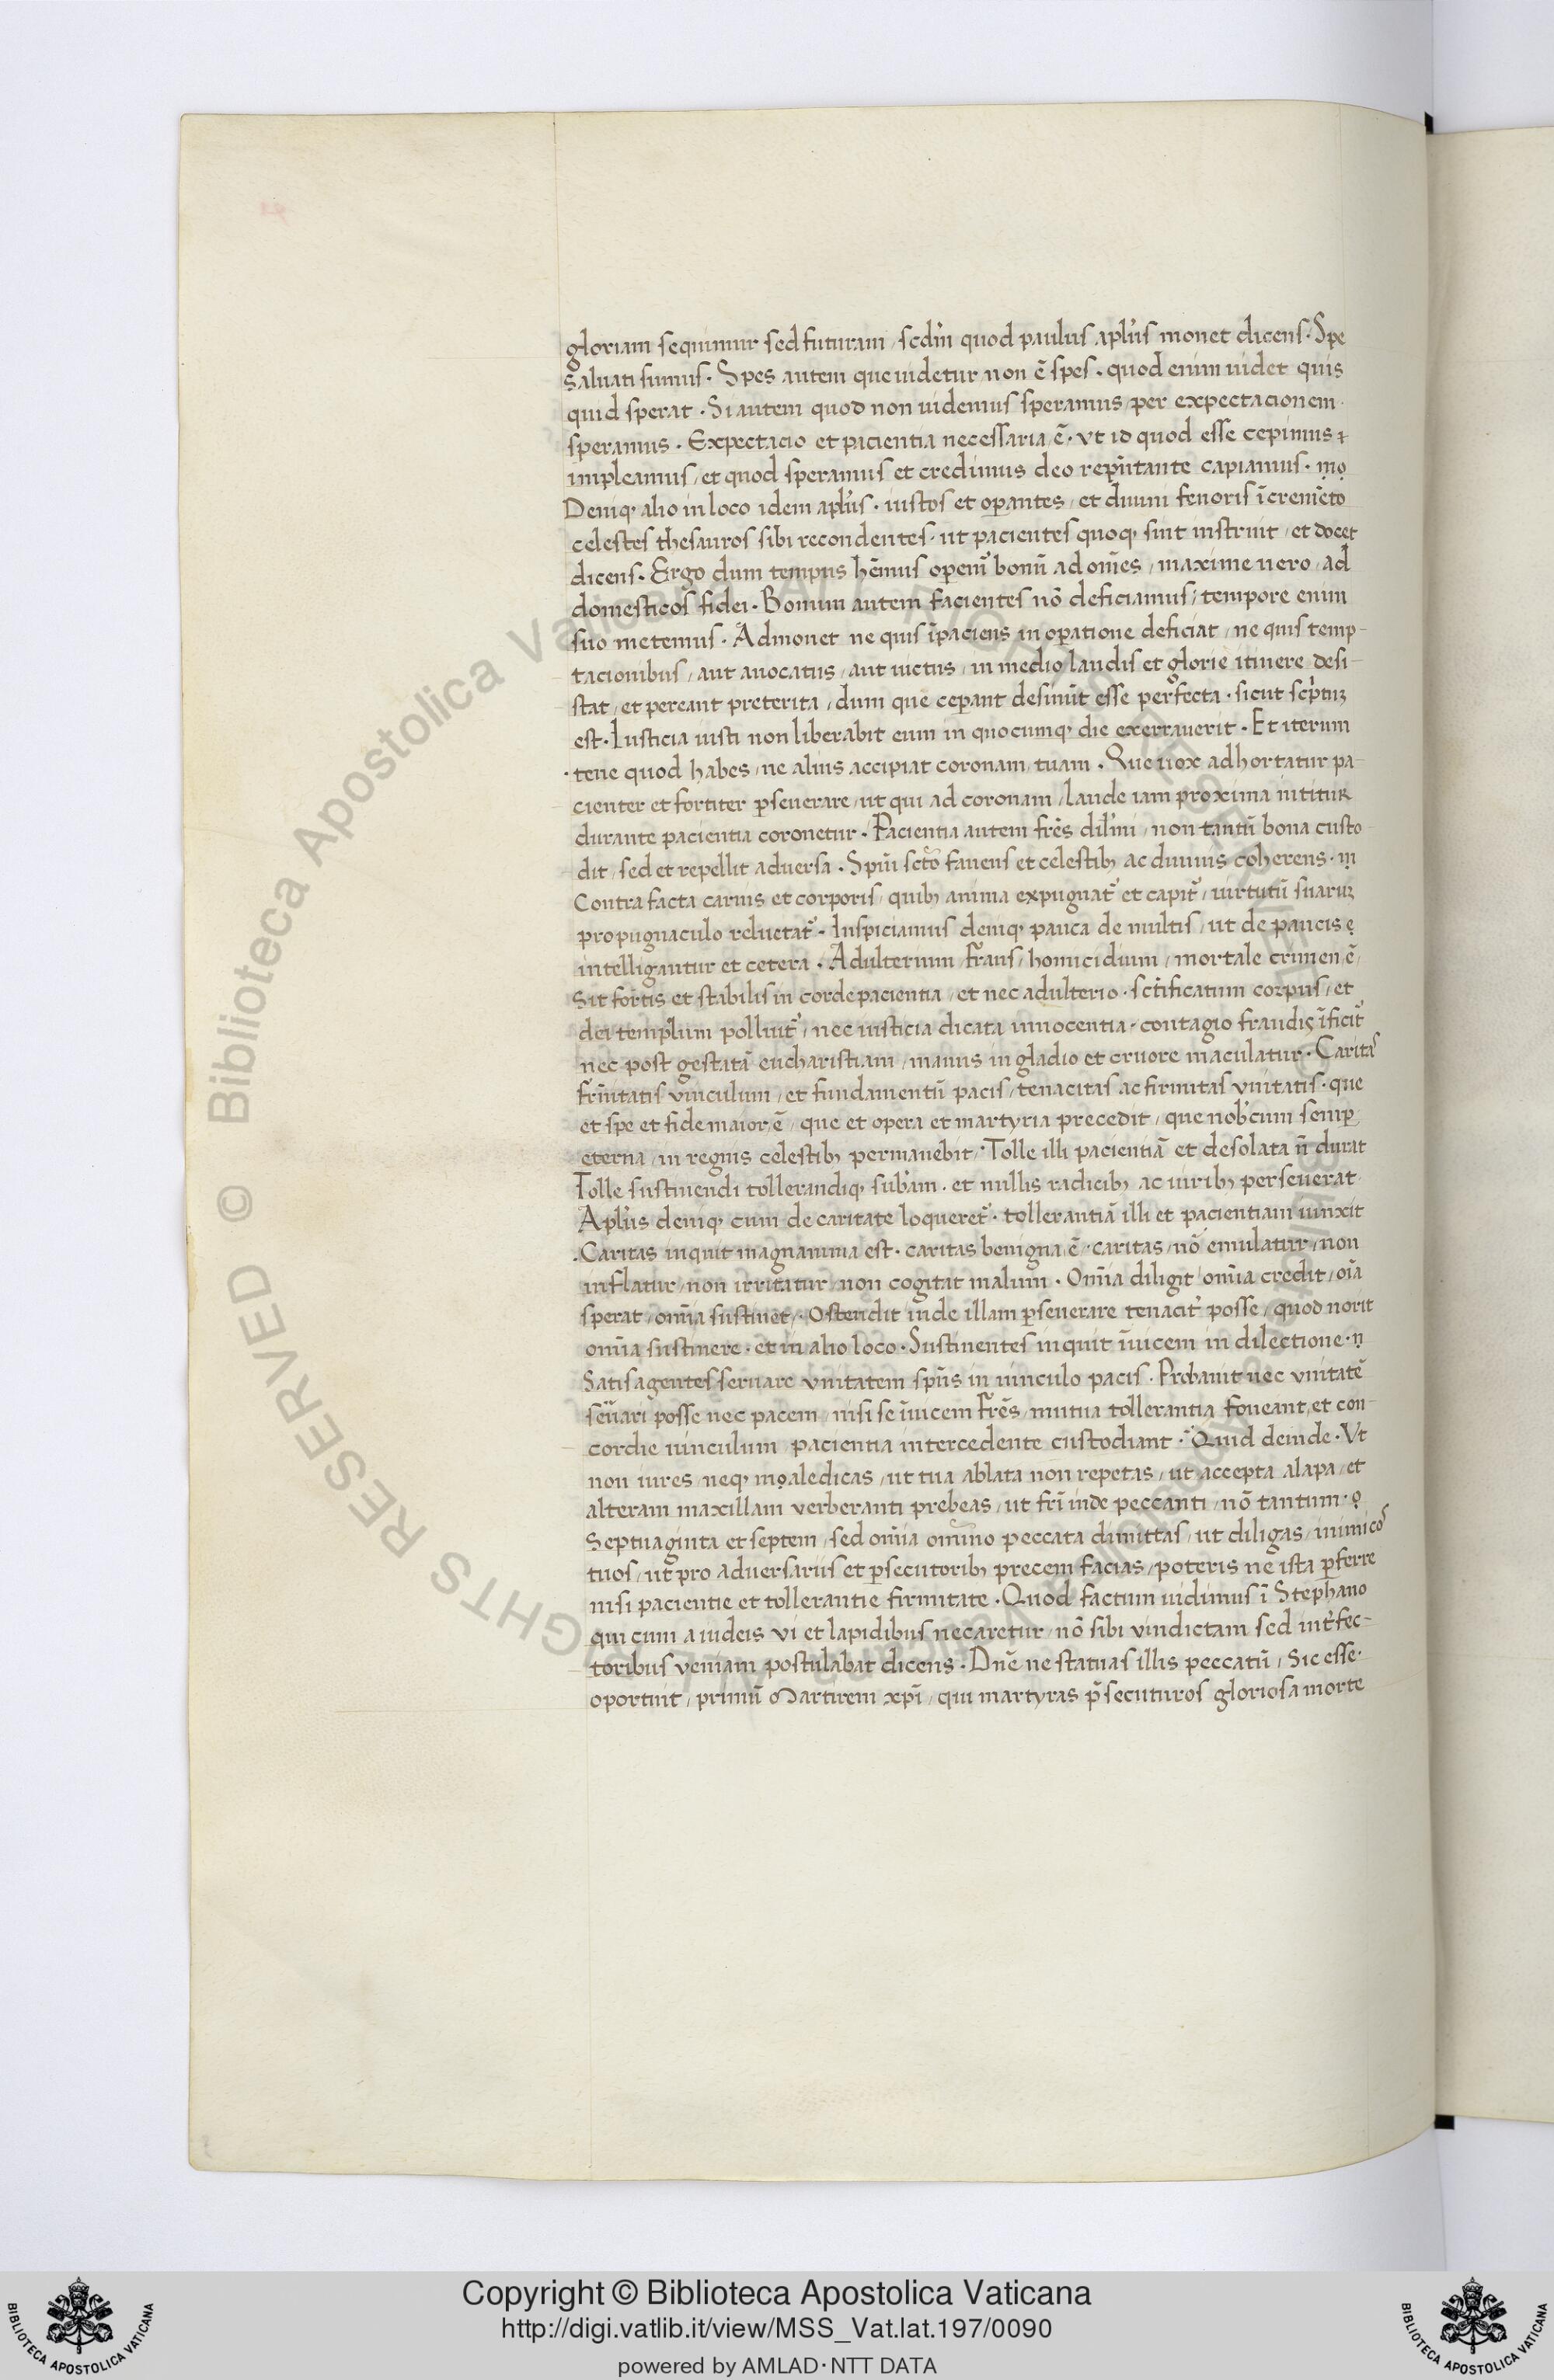 gloriam sequimur sed futuram / scdm̄ quod paulus apl̓us monet dicens · Spe
saluati sumus · Spes autem que uidetur non ē spes · quod enim uidet quis
quid sperat · Si autem quod non uidemus speramus / per expectacionem ·
speramus · Expectacio et pacientia necessaria ē · vt id quod esse cepimus
impleamus / et quod speramus et credimus deo rep̄ntante capiamus · mọ
Deniqꝫ alio in loco idem apl̓us · iustos et oꝑantes / et diuini fenoris īcremēto
celestes thesauros sibi recondentes · ut pacientes quoqꝫ sint instruit / et docet
dicens · Ergo dum tempus hēmus operem̄ bonū ad om̄es / maxime uero / ad
domesticos fidei · Bonum autem facientes nō deficiamus / tempore enim
suo metemus · Admonet ne quis īpaciens in oꝑatione deficiat / ne quis temp-
tacionibus / aut auocatus / aut uictus / in medio laudis et glorie itinere desi-
stat / et pereant preterita / dum que ceꝑant desinūt esse perfecta · sicut scp̄tuꝫ
est · Iusticia iusti non liberabit eum in quocumqꝫ die exerrauerit · Et iterum
· tene quod habes / ne alius accipiat coronam tuam · Que uox adhortatur pa-
cienter et fortiter ꝑseuerare / ut qui ad coronam / laude iam proxima nititur
durante pacientia coronetur · Pacientia autem frēs dilm̄i / non tantū bona custo-
dit / sed et repellit aduersa · Spūi scto fauens et celestibꝫ ac diuinis coherens · ṃ
Contra facta carnis et corporis / quibꝫ anima expugnat᷑ et capit᷑ / uirtutū suaruꝫ
propugnaculo reluctat᷑ · Inspiciamus deniqꝫ pauca de multis / ut de paucis ẹ
intelligantur et cetera · Adulterium / fraus / homicidium / mortale crimen ē /
Sit fortis et stabilis in corde pacientia / et nec adulterio · sct̄ificatum corpus / et
dei templum polluit᷑ / nec iusticia dicata innocentia · contagio fraudis īficit᷑
nec post gestatā eucharistiam / manus in gladio et cruore maculatur · Caritas
frn̄itatis vinculum / et fundamentū pacis / tenacitas ac firmitas vnitatis · que
et spe et fide maior ē / que et opera et martyria precedit / que nob̓cum semꝑ
eterna / in regnis celestibꝫ permanebit / Tolle illi pacientiā et desolata n̄ durat
Tolle sustinendi tollerandiqꝫ sub̓am · et nullis radicibꝫ ac uiribꝫ perseuerat
Apl̓us deniqꝫ cum de caritate loqueret᷑ · tollerantiā illi et pacientiam iunxit
· Caritas inquit magnanima est · caritas benigna ē · caritas / nō emulatur / non
inflatur / non irritatur / non cogitat malum · Om̄ia diligit / om̄ia credit / oīa
sperat / om̄ia sustinet / · Ostendit inde illam ꝑseuerare tenacit᷑ posse / quod norit
om̄ia sustinere · et in alio loco · Sustinentes inquit īuicem in dilectione · ṇ
Satis agentes seruare vnitatem spūs in uinculo pacis · Probauit nec vnitatē
seūari posse nec pacem / nisi se īuicem frēs / mutua tollerantia foueant / et con-
cordie uinculum pacientia intercedente custodiant · Quid deinde · Vt
non iures / neqꝫ mọaledicas / ut tua ablata non repetas / ut accepta alapa / et
alteram maxillam verberanti prebeas / ut frī inde peccanti / nō tantum · ọ
Septuaginta et septem / sed om̄ia omīno peccata dimittas / ut diligas / inimicos
tuos / ut pro aduersariis et ꝑsecutoribꝫ precem facias / poteris ne ista ꝑferre
nisi pacientie et tollerantie firmitate · Quod factum uidimus ī Stephano
qui cum a iudeis vi et lapidibus necaretur / nō sibi vindictam sed int᷑fec-
toribus veniam postulabat dicens · Dnē ne statuas illis peccatū / Sic esse ·
oportuit / primū Martirem xpī / qui martyras p̄secuturos gloriosa morte
Biblioteca Apostolica Vaticana ALL RIGHTS RESERVED ©
Copyright © Biblioteca Apostolica Vaticana
http://digi.vatlib.it/view/MSS_Vat.lat.197/0090
powered by AMLAD·NTT DATA
BIBLIOTECA APOSTOLICA VATICANA
BIBLIOTECA APOSTOLICA VATICANA